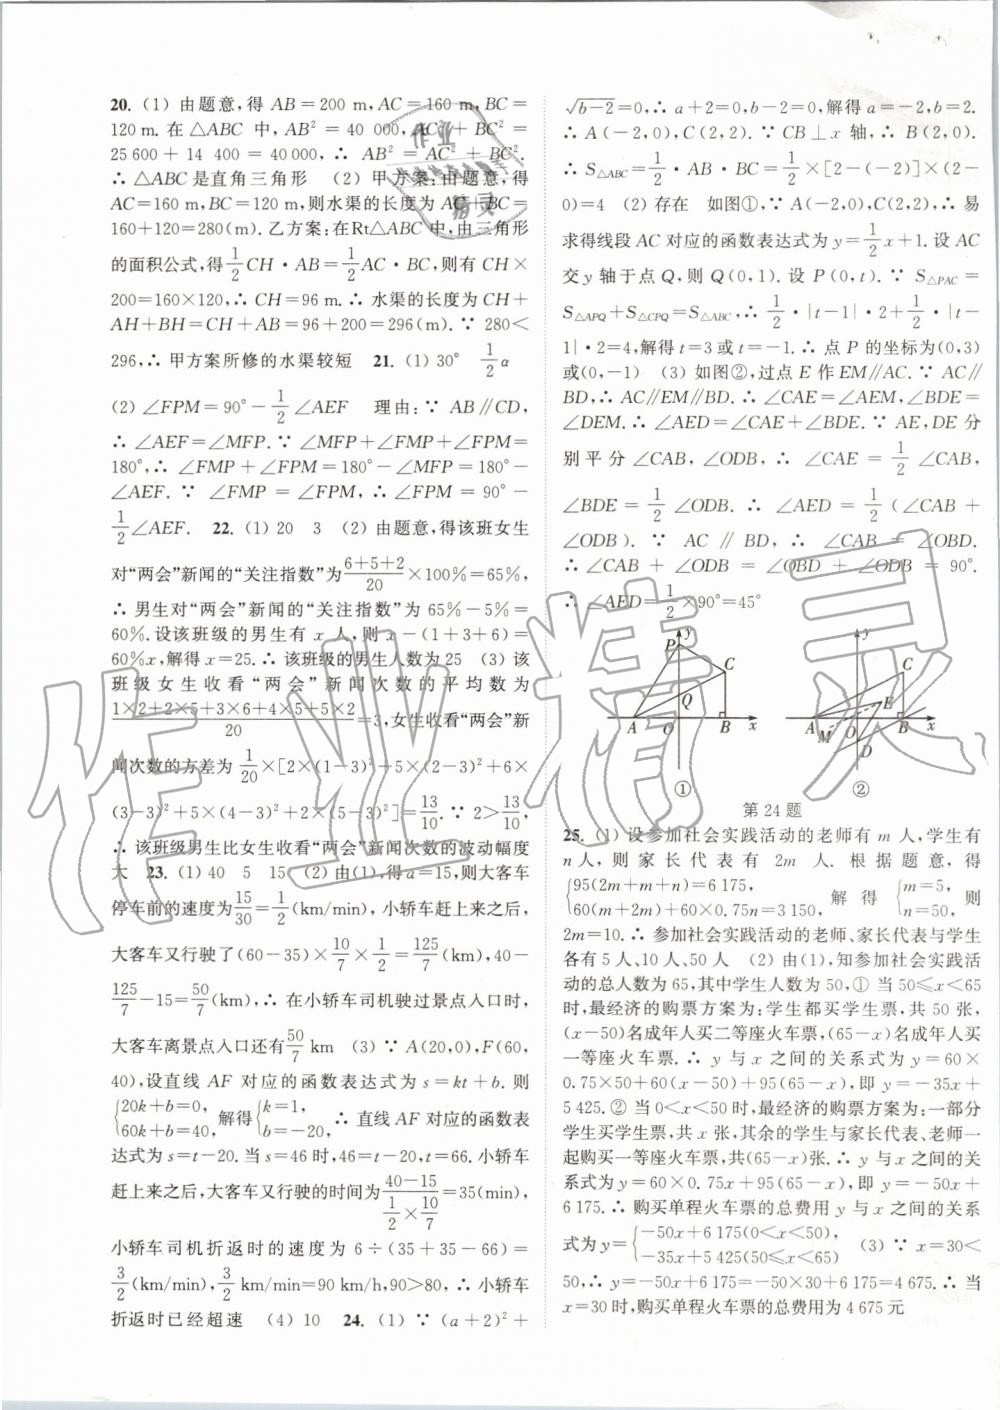 20. (1) 由题意,得 AB=200 m,AC=160 m,BC=
120 m. 在△ABC 中,AB²=40 000,AC²+BC²=
25 600+14 400=40 000,∴ AB²=AC²+BC².
∴ △ABC 是直角三角形 (2) 甲方案:由题意,得
AC=160 m,BC=120 m,则水渠的长度为 AC+BC=
160+120=280(m). 乙方案:在Rt△ABC 中,由三角形
的面积公式,得 1/2 CH·AB=1/2 AC·BC,则有 CH×
200=160×120,∴ CH=96 m. ∴ 水渠的长度为 CH+
AH+BH=CH+AB=96+200=296(m). ∵ 280<
296,∴ 甲方案所修的水渠较短 21. (1) 30° 1/2 α
(2) ∠FPM=90°-1/2∠AEF 理由:∵ AB∥CD,
∴ ∠AEF=∠MFP. ∵ ∠MFP+∠FMP+∠FPM=
180°,∴ ∠FMP+∠FPM=180°-∠MFP=180°-
∠AEF. ∵ ∠FMP=∠FPM,∴ ∠FPM=90°-
1/2∠AEF. 22. (1) 20 3 (2) 由题意,得该班女生
对“两会”新闻的“关注指数”为 (6+5+2)/20×100%=65%,
∴ 男生对“两会”新闻的“关注指数”为 65%-5%=
60%. 设该班级的男生有 x 人,则 x-(1+3+6)=
60%x,解得 x=25. ∴ 该班级的男生人数为 25 (3) 该
班级女生收看“两会”新闻次数的平均数为
(1×2+2×5+3×6+4×5+5×2)/20=3,女生收看“两会”新
闻次数的方差为 1/20×[2×(1-3)²+5×(2-3)²+6×
(3-3)²+5×(4-3)²+2×(5-3)²]=13/10. ∵ 2>13/10,
∴ 该班级男生比女生收看“两会”新闻次数的波动幅度
大 23. (1) 40 5 15 (2) 由(1),得 a=15,则大客车
停车前的速度为 15/30=1/2(km/min),小轿车赶上来之后,
大客车又行驶了(60-35)×10/7×1/2=125/7(km),40-
125/7-15=50/7(km),∴ 在小轿车司机驶过景点入口时,
大客车离景点入口还有 50/7 km (3) ∵ A(20,0),F(60,
40),设直线 AF 对应的函数表达式为 s=kt+b. 则
{20k+b=0, 60k+b=40, 解得 {k=1, b=-20, ∴ 直线 AF 对应的函数表
达式为 s=t-20. 当 s=46 时,46=t-20,t=66. 小轿车
赶上来之后,大客车又行驶的时间为 (40-15)/(1/2×10/7)=35(min),
小轿车司机折返时的速度为 6÷(35+35-66)=
3/2(km/min),3/2 km/min=90 km/h,90>80,∴ 小轿车
折返时已经超速 (4) 10 24. (1) ∵ (a+2)²+
√(b-2)=0,∴ a+2=0,b-2=0,解得 a=-2,b=2.
∴ A(-2,0),C(2,2). ∵ CB⊥x 轴,∴ B(2,0).
∴ S△ABC=1/2·AB·BC=1/2×[2-(-2)]×(2-
0)=4 (2) 存在 如图①,∵ A(-2,0),C(2,2),∴ 易
求得线段 AC 对应的函数表达式为 y=1/2 x+1. 设 AC
交 y 轴于点 Q,则 Q(0,1). 设 P(0,t). ∵ S△PAC=
S△APQ+S△CPQ=S△ABC,∴ 1/2·|t-1|·2+1/2·|t-
1|·2=4,解得 t=3 或 t=-1. ∴ 点 P 的坐标为(0,3)
或(0,-1) (3) 如图②,过点 E 作 EM∥AC. ∵ AC∥
BD,∴ AC∥EM∥BD. ∴ ∠CAE=∠AEM,∠BDE=
∠DEM. ∴ ∠AED=∠CAE+∠BDE. ∵ AE,DE 分
别平分∠CAB,∠ODB,∴ ∠CAE=1/2∠CAB,
∠BDE=1/2∠ODB. ∴ ∠AED=1/2(∠CAB+
∠ODB). ∵ AC∥BD,∴ ∠CAB=∠OBD.
∴ ∠CAB+∠ODB=∠OBD+∠ODB=90°.
∴ ∠AED=1/2×90°=45°
y P C Q A O B x ①
y C E A M O B x D ②
第 24 题
25. (1) 设参加社会实践活动的老师有 m 人,学生有
n 人,则家长代表有 2m 人. 根据题意,得
{95(2m+m+n)=6 175, 60(m+2m)+60×0.75n=3 150, 解得 {m=5, n=50,
2m=10. ∴ 参加社会实践活动的老师、家长代表与学生
各有 5 人、10 人、50 人 (2) 由(1),知参加社会实践活
动的总人数为 65,其中学生人数为 50,① 当 50≤x<65
时,最经济的购票方案为:学生都买学生票,共 50 张,
(x-50)名成年人买二等座火车票,(65-x)名成年人买
一等座火车票. ∴ y 与 x 之间的关系式为 y=60×
0.75×50+60(x-50)+95(65-x),即 y=-35x+
5 425. ② 当 0<x<50 时,最经济的购票方案为:一部分
学生买学生票,共 x 张,其余的学生与家长代表、老师一
起购买一等座火车票,共(65-x)张. ∴ y 与 x 之间的关
系式为 y=60×0.75x+95(65-x),即 y=-50x+
6 175. ∴ 购买单程火车票的总费用 y 与 x 之间的关系
式为 y={-50x+6 175(0<x<50), -35x+5 425(50≤x<65) (3) ∵ x=30<
50,∴ y=-50x+6 175=-50×30+6 175=4 675. ∴ 当
x=30 时,购买单程火车票的总费用为 4 675 元
作业精灵